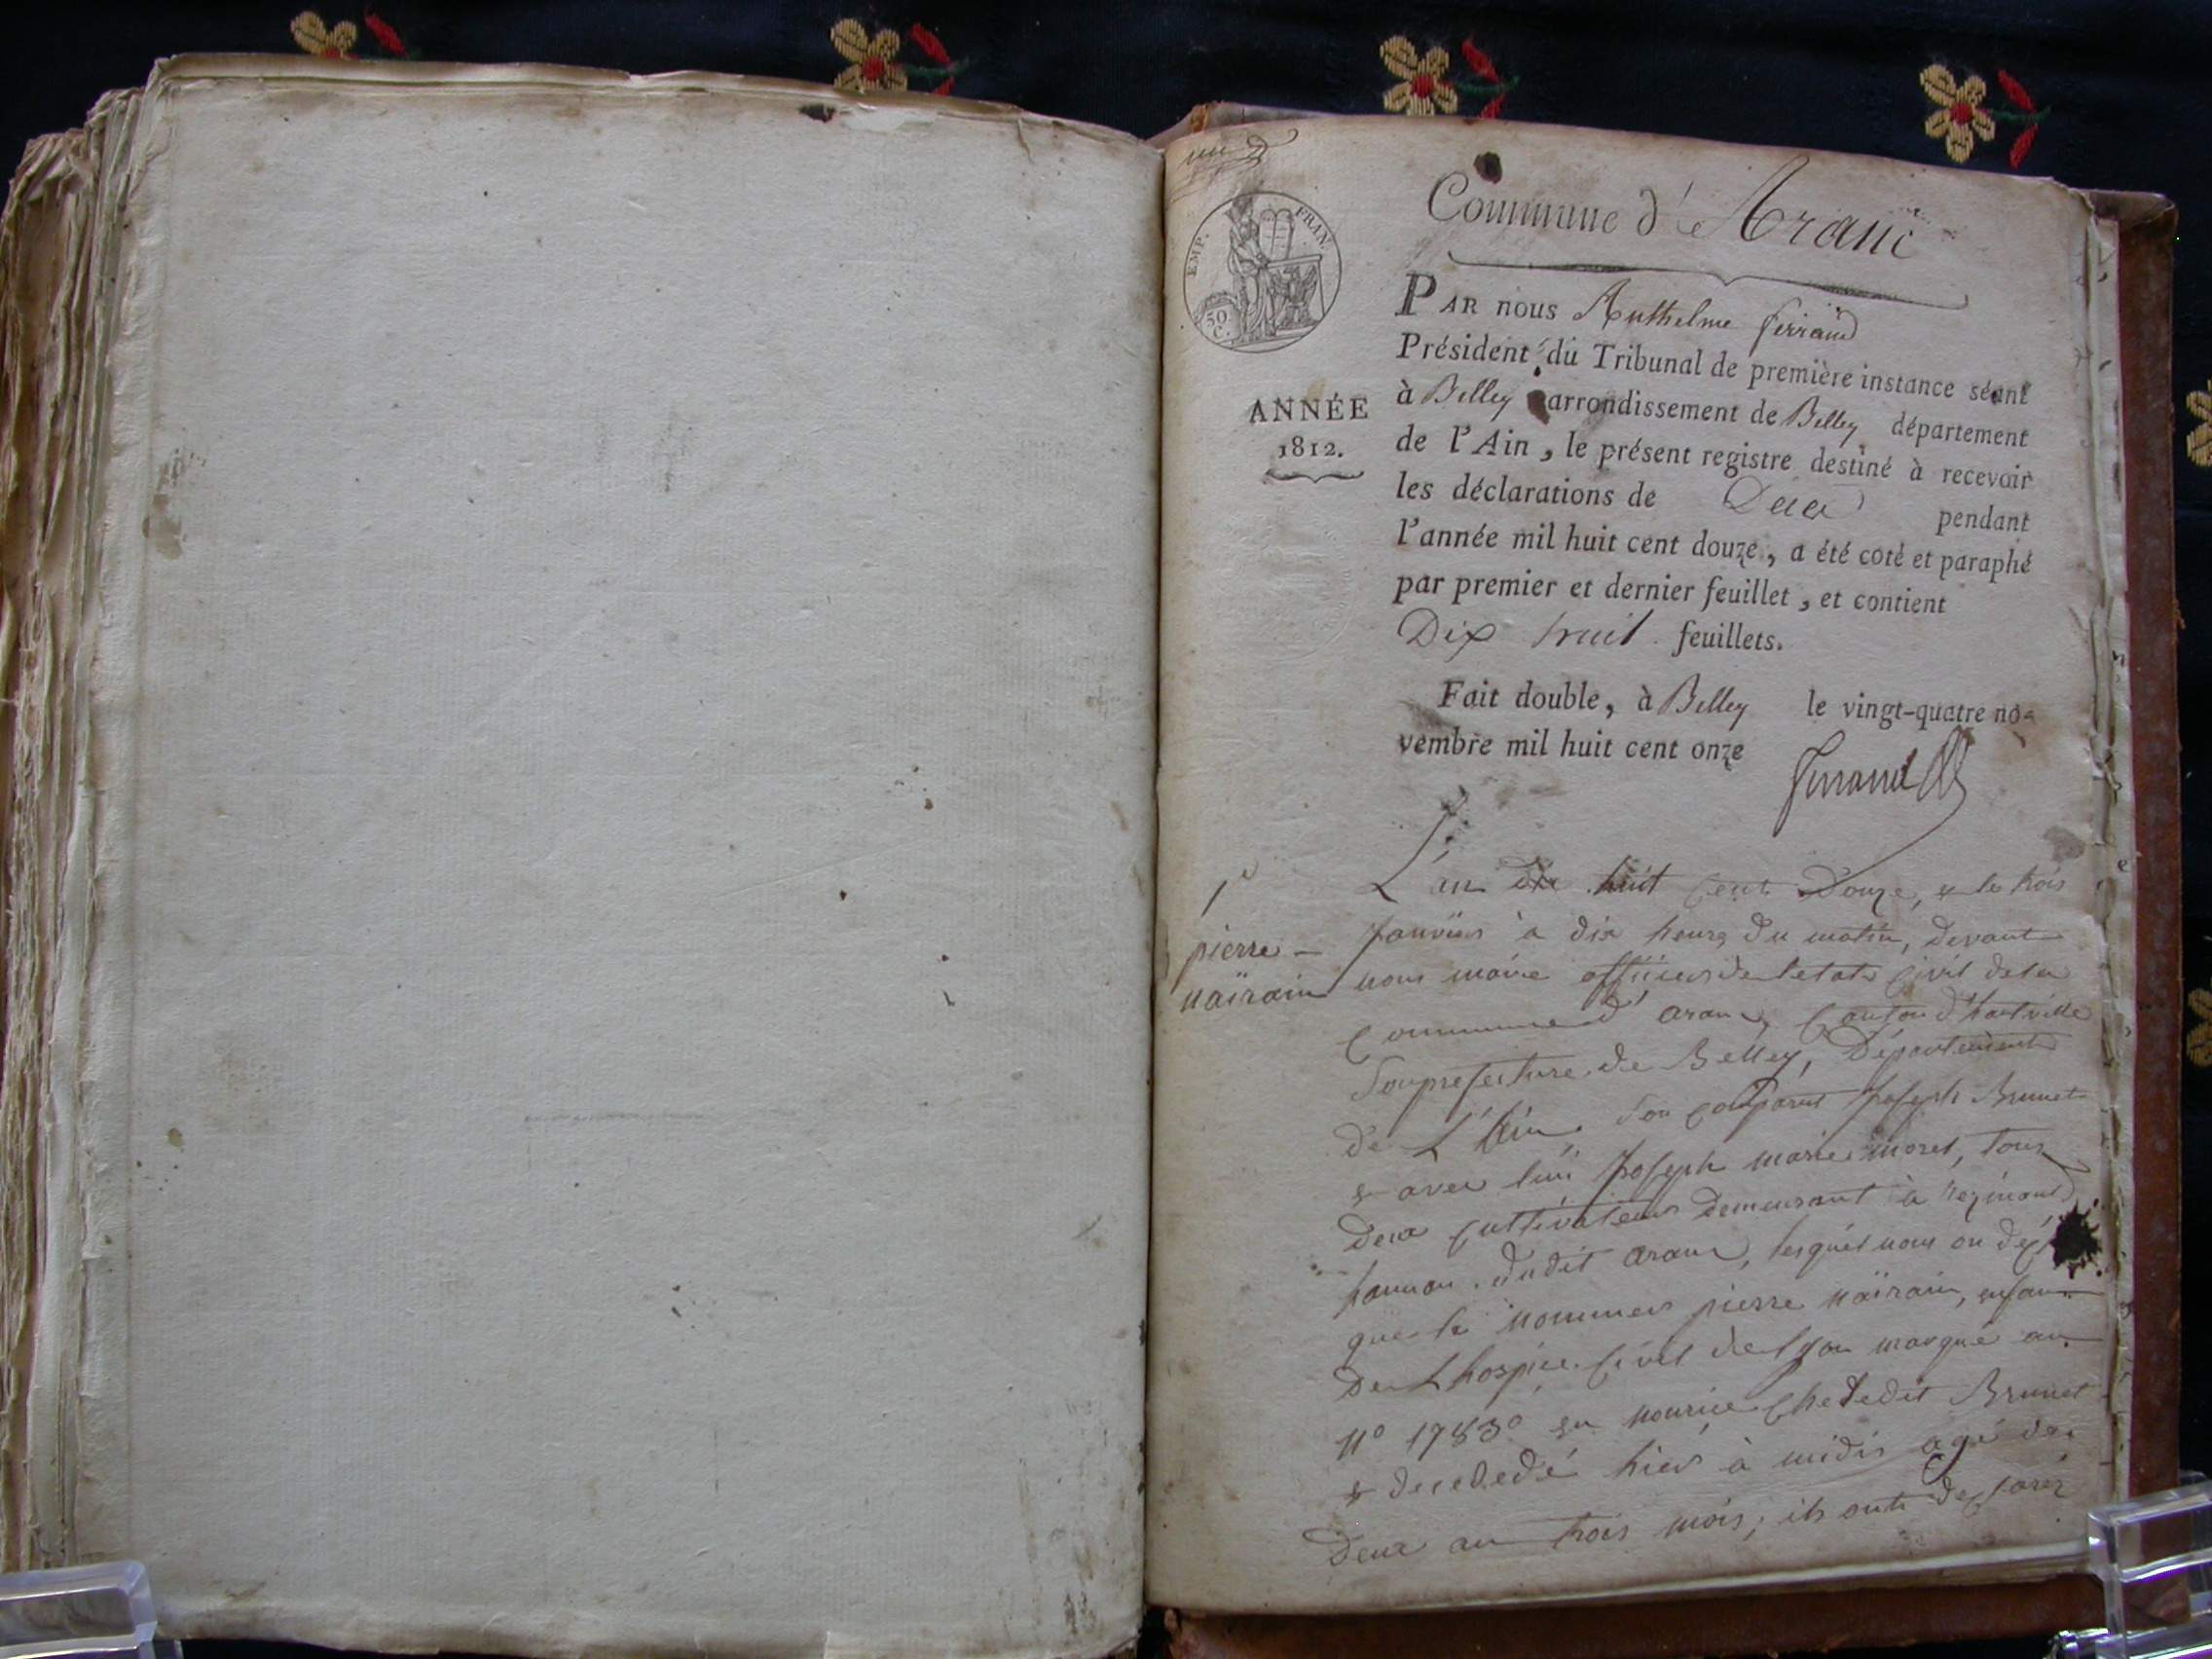 un
EMP. FRAN.
50 C.
Commune d'Aranc
PAR nous Anthelme ferrand
Président du Tribunal de première instance séant
à Belley arrondissement de Belley département
de l'Ain, le présent registre destiné à recevoir
les déclarations de Décè pendant
l'année mil huit cent douze, a été coté et paraphé
par premier et dernier feuillet, et contient
Dix huit feuillets.
ANNÉE
1812.
Fait double, à Belley le vingt-quatre no-
vembre mil huit cent onze
ferrand
1e
pierre
naïrain
L'an dix huit cent Douze, & le trois
janvier à dix heures du matin, devant
nous maire officier de letat Civil de la
Commune d'aranc, Canton d'hauteville
Souprefecture de Belley, Département
De L'Ain, son comparut Joseph Brunet
& avec lui Joseph marie moret, tous
Deux Cultivateurs demeurant à
hamau dudit aranc, lesquel nous on
que le nommer pierre naïrain, enfant
De Lhospice Civil de lyon marqué au
N° 17830 en nourice Che ledit Brunet
& décédedé hier à midis agé de
Deux an trois mois; ils ont